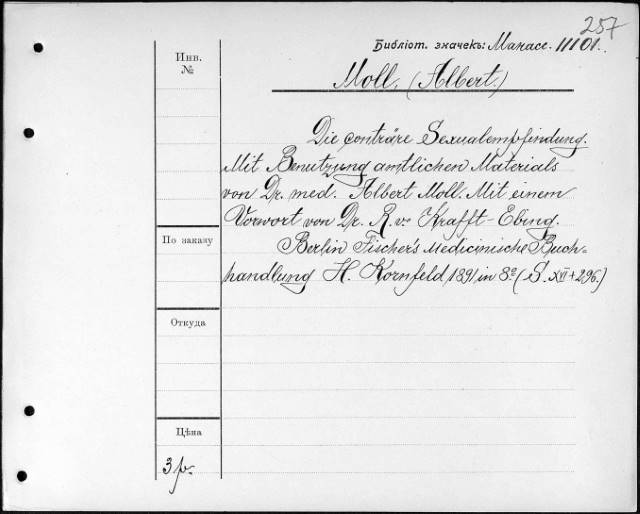 257
Библіот. значекъ: Манасс. 11101.
Инв.
№
Moll, (Albert.)
Die conträre Sexualempfindung.
Mit Benutzung amtlichen Materials
von Dr. med. Albert Moll. Mit einem
Vorwort von Dr. R. v. Krafft-Ebing.
По заказу
Berlin Fischer's Medicinische Buch-
handlung H. Kornfeld, 1891, in 8º (S. XVI+296.)
Откуда
Цѣна
3 р.